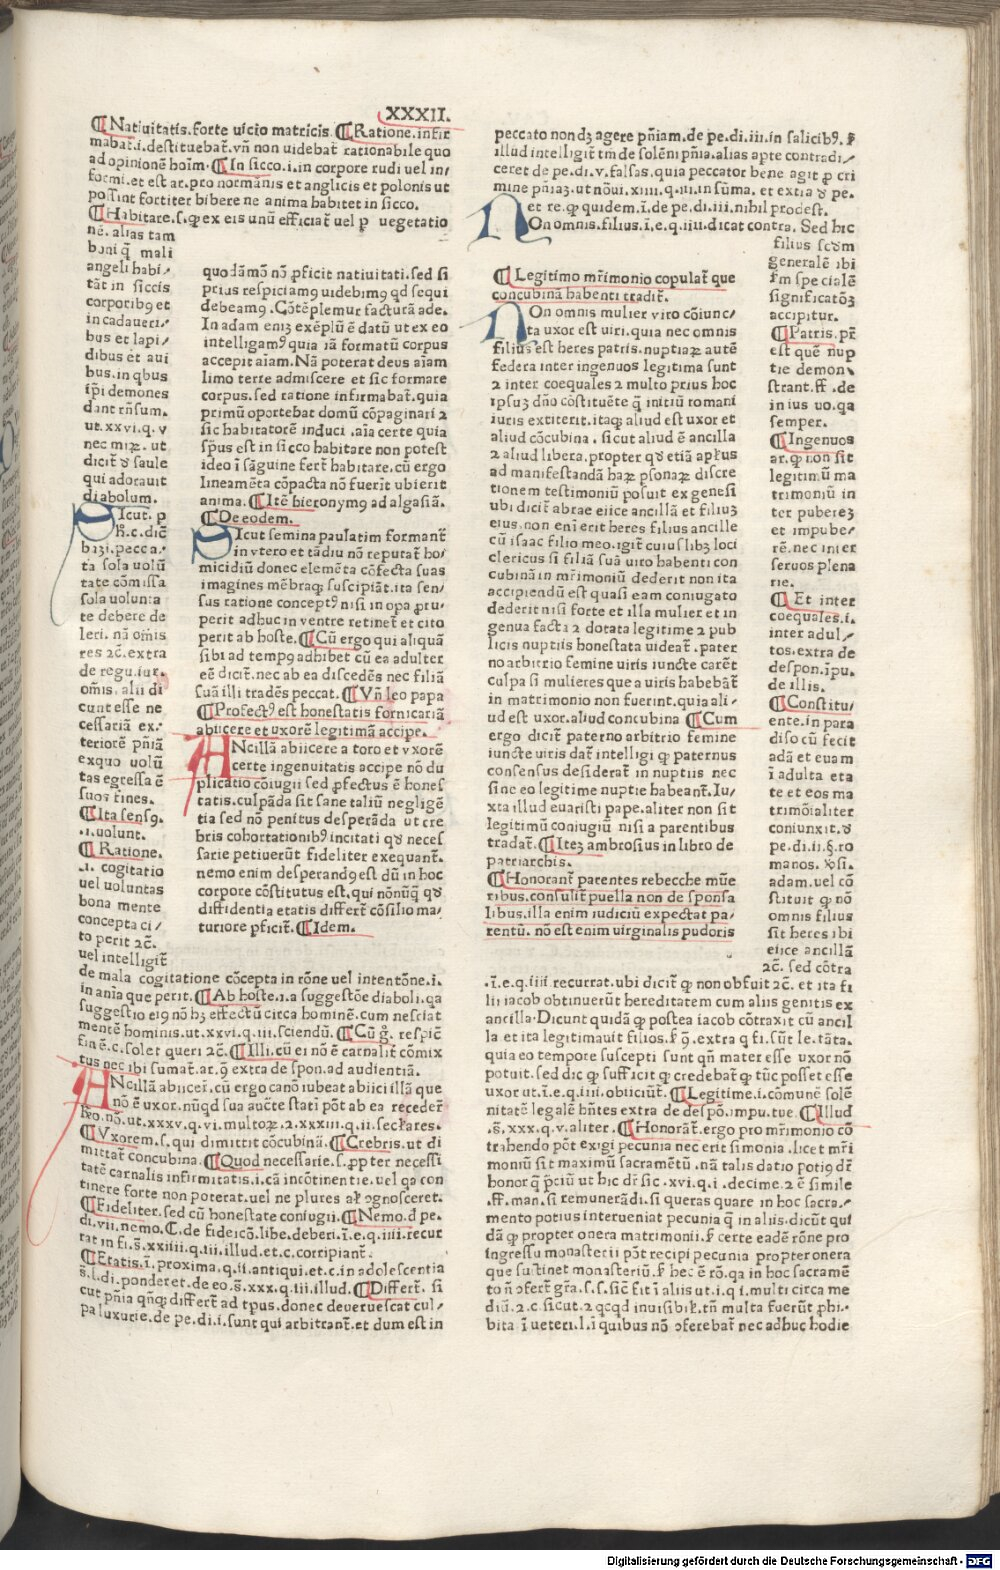 XXXII.
¶ Natiuitatis. forte uicio matricis. ¶ Ratione. infir
mabat̄. i. destituebat̄. vn̄ non uidebat̄ rationabile quo
ad opinionē hoīm. ¶ In sicco. i. in corpore rudi uel in/
formi. et est ar. pro normanis et anglicis et polonis ut
possint fortiter bibere ne anima habitet in sicco.
¶ Habitare. s. ꝙ ex eis unū efficiat̄ uel ꝑ uegetatio
nē. alias tam
boni q̄ mali
angeli habi/
tāt in siccis
corporibꝰ et
in cadaueri/
bus et lapi/
dibus et aui
bus. in qbus
ip̄i demones
dant rn̄sum.
ut. xxvi. q. v
nec miꝝ. ut
dicit̄ ꝺ saule
qui adorauit
diabolum.
Sicut. p
h̄. c. dic̄
bāꝫi. pecca/
ta sola uolū
tate cōmissa
sola uolunta
te debere de
leri. nā om̄is
res ⁊c̄. extra
de regu. iur.
om̄is. alii di
cunt esse ne
cessariā ex/
teriorē pn̄iā
exquo uolū
tas egressa ē
suos fines.
¶ Ita sensꝰ.
.i. uolunt.
¶ Ratione.
.i. cogitatio
uel uoluntas
bona mente
concepta ci/
to perit ⁊c̄.
uel intelligit̄
de mala cogitatione cōcepta in rōne uel intentōne. i.
in aniā que perit. ¶ Ab hoste. i. a suggestōe diaboli. qa
suggestio eiꝰ nō hꝫ effectū circa hominē. cum nesciat
mentē hominis. ut. xxvi. q. iii. sciendū. ¶ Cū g̊. respic̄
fin ē. c. solet queri ⁊c̄. ¶ Illi. cū ei nō ē carnalit̄ cōmix
tus nec ibi sumat̄. ar. q̄ extra de spon. ad audientiā.
Ancillā abiicer̄. cū ergo canō iubeat abiici illā que
nō ē uxor. nūqd sua auctē stati pōt ab ea recedēr̄
h̄o. nō. ut. xxxv. q. vi. multoꝝ. ⁊. xxxiii. q. ii. sechares.
¶ Vxorem. s. qui dimittit cōcubinā. ¶ Crebris. ut di
mittat̄ concubina. ¶ Quod necessarie. s. ꝓpter necessi
tatē carnalis infirmitatis. i. cā incōtinentie. uel qa con
tinere forte non poterat. uel ne plures al̄r ognosceret.
¶ Fideliter. sed cū honestate coniugii. ¶ Nemo. d̄ pe.
di. vii. nemo. C. de fideicō. libe. deberi. ī. e. q. iiii. recur
rat in fi. s̄. xxiiii. q. iii. illud. et. c. corripiant̄.
¶ Etatis. ī. proxima. q. ii. antiqui. et. c. in adolescentia
s̄. l. di. ponderet. de eo. s̄. xxx. q. iii. illud. ¶ Differt̄. si
cut pn̄ia qn̄qꝫ differt̄ ad tp̄us. donec deueruescat cul/
pa luxurie. de pe. di. i. sunt qui arbitrant̄. et dum est in
quodāmō nō ꝓficit natiuitati. sed si
prius respiciamꝰ uidebimꝰ qd sequi
debeamꝰ. Cōtēplemur facturā ade.
In adam eniꝫ exēplū ē datū ut ex eo
intelligamꝰ quia iā formatū corpus
accepit aīam. Nā poterat deus aīam
limo terre admiscere et sic formare
corpus. sed ratione infirmabat̄. quia
primū oportebat domū cōpaginari ⁊
sic habitatorē induci. aīa certe quia
sp̄us est in sicco habitare non potest
ideo ī sāguine fert̄ habitare. cū ergo
lineamēta cōpacta nō fuerit ubi erit
anima. ¶ Itē hieronymꝰ ad algasiā.
¶ De eodem.
Sicut semina paulatim formant̄
in vtero et tādiu nō reputat̄ ho/
micidiū donec elemēta cōfecta suas
imagines mēbraqꝫ suscipiāt. ita sen/
sus ratione conceptꝰ nisi in opa ꝓru/
perit adhuc in ventre retinet̄ et cito
perit ab hoste. ¶ Cū ergo qui aliquā
sibi ad tempꝰ adhibet cū ea adulter
eē dicit̄. nec ab ea discedēs nec filiā
suā illi tradēs peccat. ¶ Vn̄ leo papa
¶ Profectꝰ est honestatis fornicariā
abiicere et uxorē legitimā accipe.
Ancillā abiicere a toro et vxorē
certe ingenuitatis accipe nō du
plicatio cōiugii sed ꝓfectus ē hones
tatis. culpāda sit sane taliū negligē
tia sed nō penitus desperāda ut cre
bris cohortationibꝰ incitati qꝺ neces
sarie petiuerūt fideliter exequant̄.
nemo enim desperandꝰ est dū in hoc
corpore cōstitutus est. qui nōnūqꝫ qꝺ
diffidentia etatis differt̄ cōsilio ma/
turiore ꝓficit̄. ¶ Idem.
peccato non dꝫ agere pn̄iam. de pe. di. iii. in salicibꝰ. ꝟ
illud intelligit̄ tm̄ de solēni pn̄ia. alias apte contradi/
ceret de pe. di. v. falsas. quia peccator bene agit ꝓ cri
mine pn̄iaꝫ. ut nōui. xiiii. q. iii. in sūma. et extra ꝺ pe.
et re. ꝙ quidem. ī. de pe. di. iii. nihil prodest.
Non omnis. filius. ī. e. q. iiii. dicat contra. Sed hic
filius scd̄m
generalē ibi
s̄m specialē
significatōꝫ
accipitur.
¶ Patris. pr̄
est quē nup
tie demon\
strant. ff. de
in ius uo. qa
semper.
¶ Ingenuos
ar. ꝙ non sit
legitimū ma
trimoniū in
ter pubereꝫ
et impube/
rē. nec inter
seruos plena
rie.
¶ Et inter
coequales. i.
inter adul/
tos. extra de
despon. īpu.
de illis.
¶ Constitu/
ente. in para
diso cū fecit
adā et euam
ī adulta eta
te et eos ma
trimōialiter
coniunxit. ꝺ
pe. di. ii. §. ro
manos. ꝟ si.
adam. uel cō
stituit ꝙ nō
omnis filius
sit heres ibi
eiice ancillā
⁊c̄. sed cōtra
¶ Legitimo mr̄imonio copulat̄ que
concubinā habenti tradit̄.
Non omnis mulier viro cōiunc/
ta uxor est uiri. quia nec omnis
filius est heres patris. nuptiaꝝ autē
federa inter ingenuos legitima sunt
⁊ inter coequales ⁊ multo prius hoc
ipsuꝫ dn̄o cōstituēte q̄ initiū romani
iuris extiterit. itaqꝫ aliud est uxor et
aliud cōcubina. sicut aliud ē ancilla
⁊ aliud libera. propter qꝺ etiā ap̄lus
ad manifestandā haꝝ ꝑsonaꝝ discre
tionem testimoniū posuit ex genesi
ubi dicit̄ abrae eiice ancillā et filiuꝫ
eius. non enī erit heres filius ancille
cū isaac filio meo. igit̄ cuiuslibꝫ loci
clericus si filiā suā uiro habenti con
cubinā in mr̄imoniū dederit non ita
accipiendū est quasi eam coniugato
dederit nisi forte et illa mulier et in
genua facta ⁊ dotata legitime ⁊ pub
licis nuptiis honestata uideat̄. pater
no arbitrio femine uiris iuncte carēt
culpa si mulieres que a uiris habebāt̄
in matrimonio non fuerint. quia ali/
ud est uxor. aliud concubina ¶ Cum
ergo dicit̄ paterno arbitrio femine
iuncte uiris dat̄ intelligi ꝙ paternus
consensus desiderat̄ in nuptiis nec
sine eo legitime nuptie habeant̄. Iu/
xta illud euaristi pape. aliter non sit
legitimū coniugiū nisi a parentibus
tradat̄. ¶ Iteꝫ ambrosius in libro de
patriarchis.
¶ Honorant̄ parentes rebecche mūe
ribus. consulit̄ puella non de sponsa
libus. illa enim iudiciū expectat pa/
rentū. nō est enim uirginalis pudoris
.ī. e. q. iiii. recurrat. ubi dicit̄ ꝙ non obfuit ⁊c̄. et ita fi
lii iacob obtinuerūt hereditatem cum aliis genitis ex
ancilla. Dicunt quidā ꝙ postea iacob cōtraxit cū ancil
la et ita legitimauit filios. ꝟ. g̊. extra q̄ fi. sūt le. tāta.
quia eo tempore suscepti sunt qn̄ mater esse uxor nō
potuit. sed dic ꝙ sufficit ꝙ credebat̄ ꝙ tūc posset esse
uxor ut. ī. e. q. iii. obiciūt̄. ¶ Legitime. i. cōmunē solē
nitatē legalē hn̄tes extra de despō. impu. tue. ¶ Illud
.s̄. xxx. q. v. aliter. ¶ Honorāt̄. ergo pro mr̄imonio cō
trahendo pōt exigi pecunia nec erit simonia. licet mr̄i
moniū sit maximū sacramētū. nā talis datio potiꝰ dr̄
honor q̄ p̄ciū ut hic dr̄ sic. xvi. q. i. decime. ⁊ ē simile
.ff. man. si remunerādi. si queras quare in hoc sacra/
mento potius interueniat pecunia q̄ in aliis. dicūt qui
dā ꝙ propter onera matrimonii. ꝟ certe eadē rōne pro
ingressu monasterii pōt recipi pecunia propter onera
que sustinet monasteriū. ꝟ hec ē rō. qa in hoc sacramē
to n̄ ofert̄ gr̄a. s. s. sic̄ fit ī aliis ut. i. q. i. multi circa me
diū. ⁊. c. sicut. ⁊ qcqd inuisibil̄. tn̄ multa fuerūt ꝓhi/
bita ī ueteri. l. ī quibus nō ɔferebat̄ nec adhuc hodie
Digitalisierung gefördert durch die Deutsche Forschungsgemeinschaft - DFG